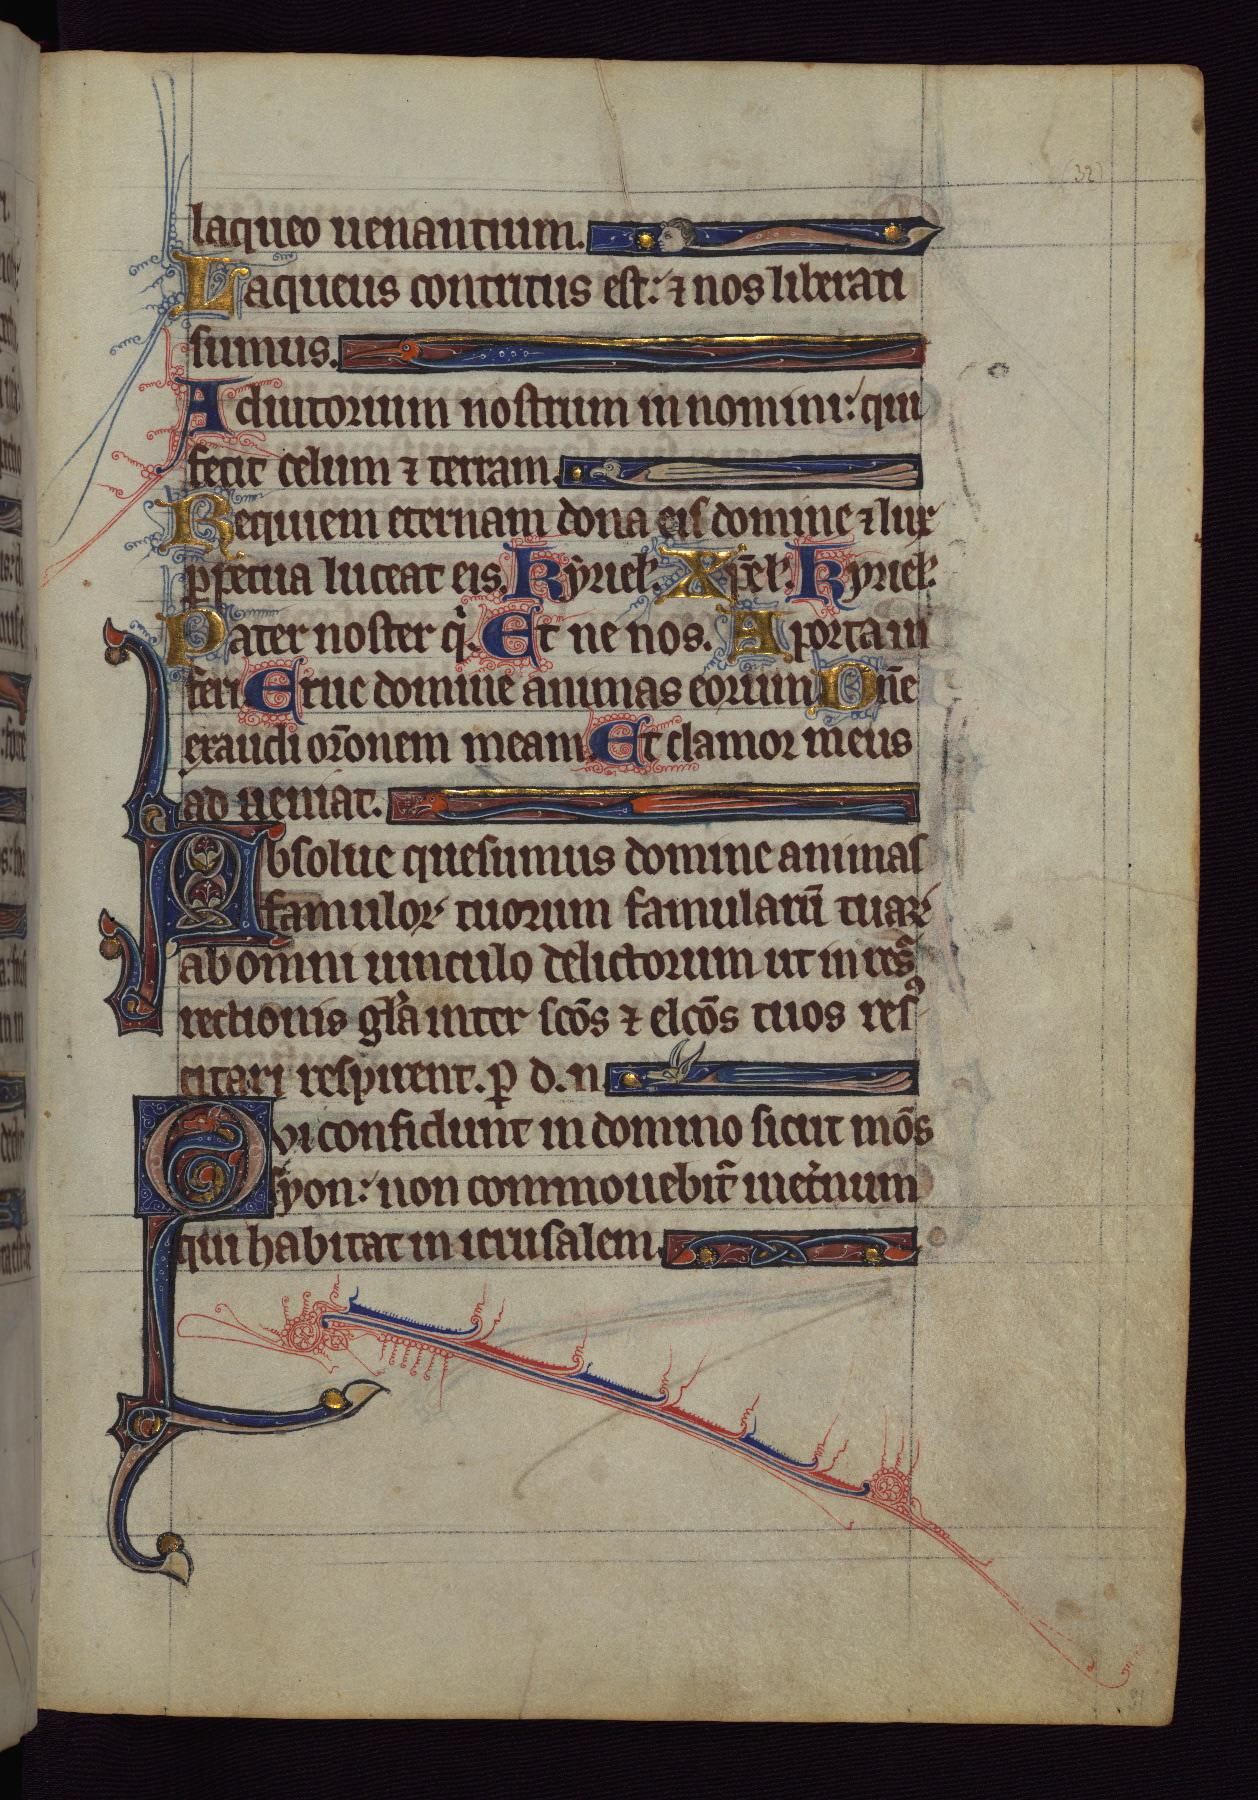 (32)
laqueo uenantium.
Laqueus contritus est: ⁊ nos liberati
sumus.
Adiutorium nostrum in nomini: qui
fecit celum ⁊ terram.
Requiem eternam dona eis domine ⁊ lux
ꝑpetua luceat eis. Kyriel̛. Xp̄el̛. Kyriel̛.
Pater noster q̇. Et ne nos. A porta in
feri Erue domine animas eorum Dn̄e
exaudi or̄onem meam. Et clamor meus
ad ueniat.
Absolue quesumus domine animas
famulor̛ tuorum famularū tuar̛
ab omni uinculo delictorum ut in res
rectionis gl̄a inter sc̄os ⁊ elc̄os tuos resꝰ
citari respirent. ꝑ d. n.
Qvi confidunt in domino sicut mōs
syon: non commouebit̛ inet̛num
qui habitat in ierusalem.